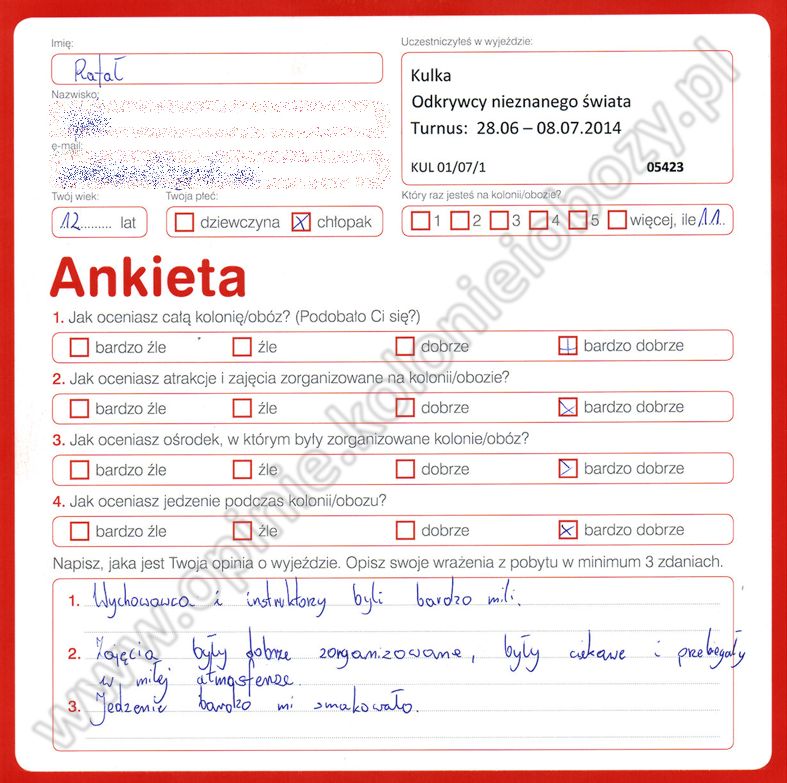 Imię:
Rafał
Uczestniczyłeś w wyjeździe:
Kulka
Odkrywcy nieznanego świata
Turnus: 28.06 – 08.07.2014
KUL 01/07/1 05423
Nazwisko:
e-mail:
Twój wiek: Twoja płeć:
12......... lat dziewczyna chłopak
Który raz jesteś na kolonii/obozie?
1 2 3 4 5 więcej, ile 11..
Ankieta
1. Jak oceniasz całą kolonię/obóz? (Podobało Ci się?)
bardzo źle źle dobrze bardzo dobrze
2. Jak oceniasz atrakcje i zajęcia zorganizowane na kolonii/obozie?
bardzo źle źle dobrze bardzo dobrze
3. Jak oceniasz ośrodek, w którym były zorganizowane kolonie/obóz?
bardzo źle źle dobrze bardzo dobrze
4. Jak oceniasz jedzenie podczas kolonii/obozu?
bardzo źle źle dobrze bardzo dobrze
Napisz, jaka jest Twoja opinia o wyjeździe. Opisz swoje wrażenia z pobytu w minimum 3 zdaniach.
1. Wychowawca i instruktorzy byli bardzo mili.
2. Zajęcia były dobrze zorganizowane, były ciekawe i przebiegały
w miłej atmosferze.
3. Jedzenie bardzo mi smakowało.
www.opinie.kolonieiobozy.pl